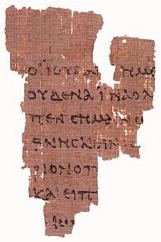 ΟΙΙΟΥΔΑΙ ΗΜ
ΟΥΔΕΝΑΙΝΑΟΛ
ΠΕΝϹΗΜΑΙΝ
ΘΝΗϹΚΕΙΝ
ΡΙΟΝΟΠ
ΚΑΙΕΙΠ